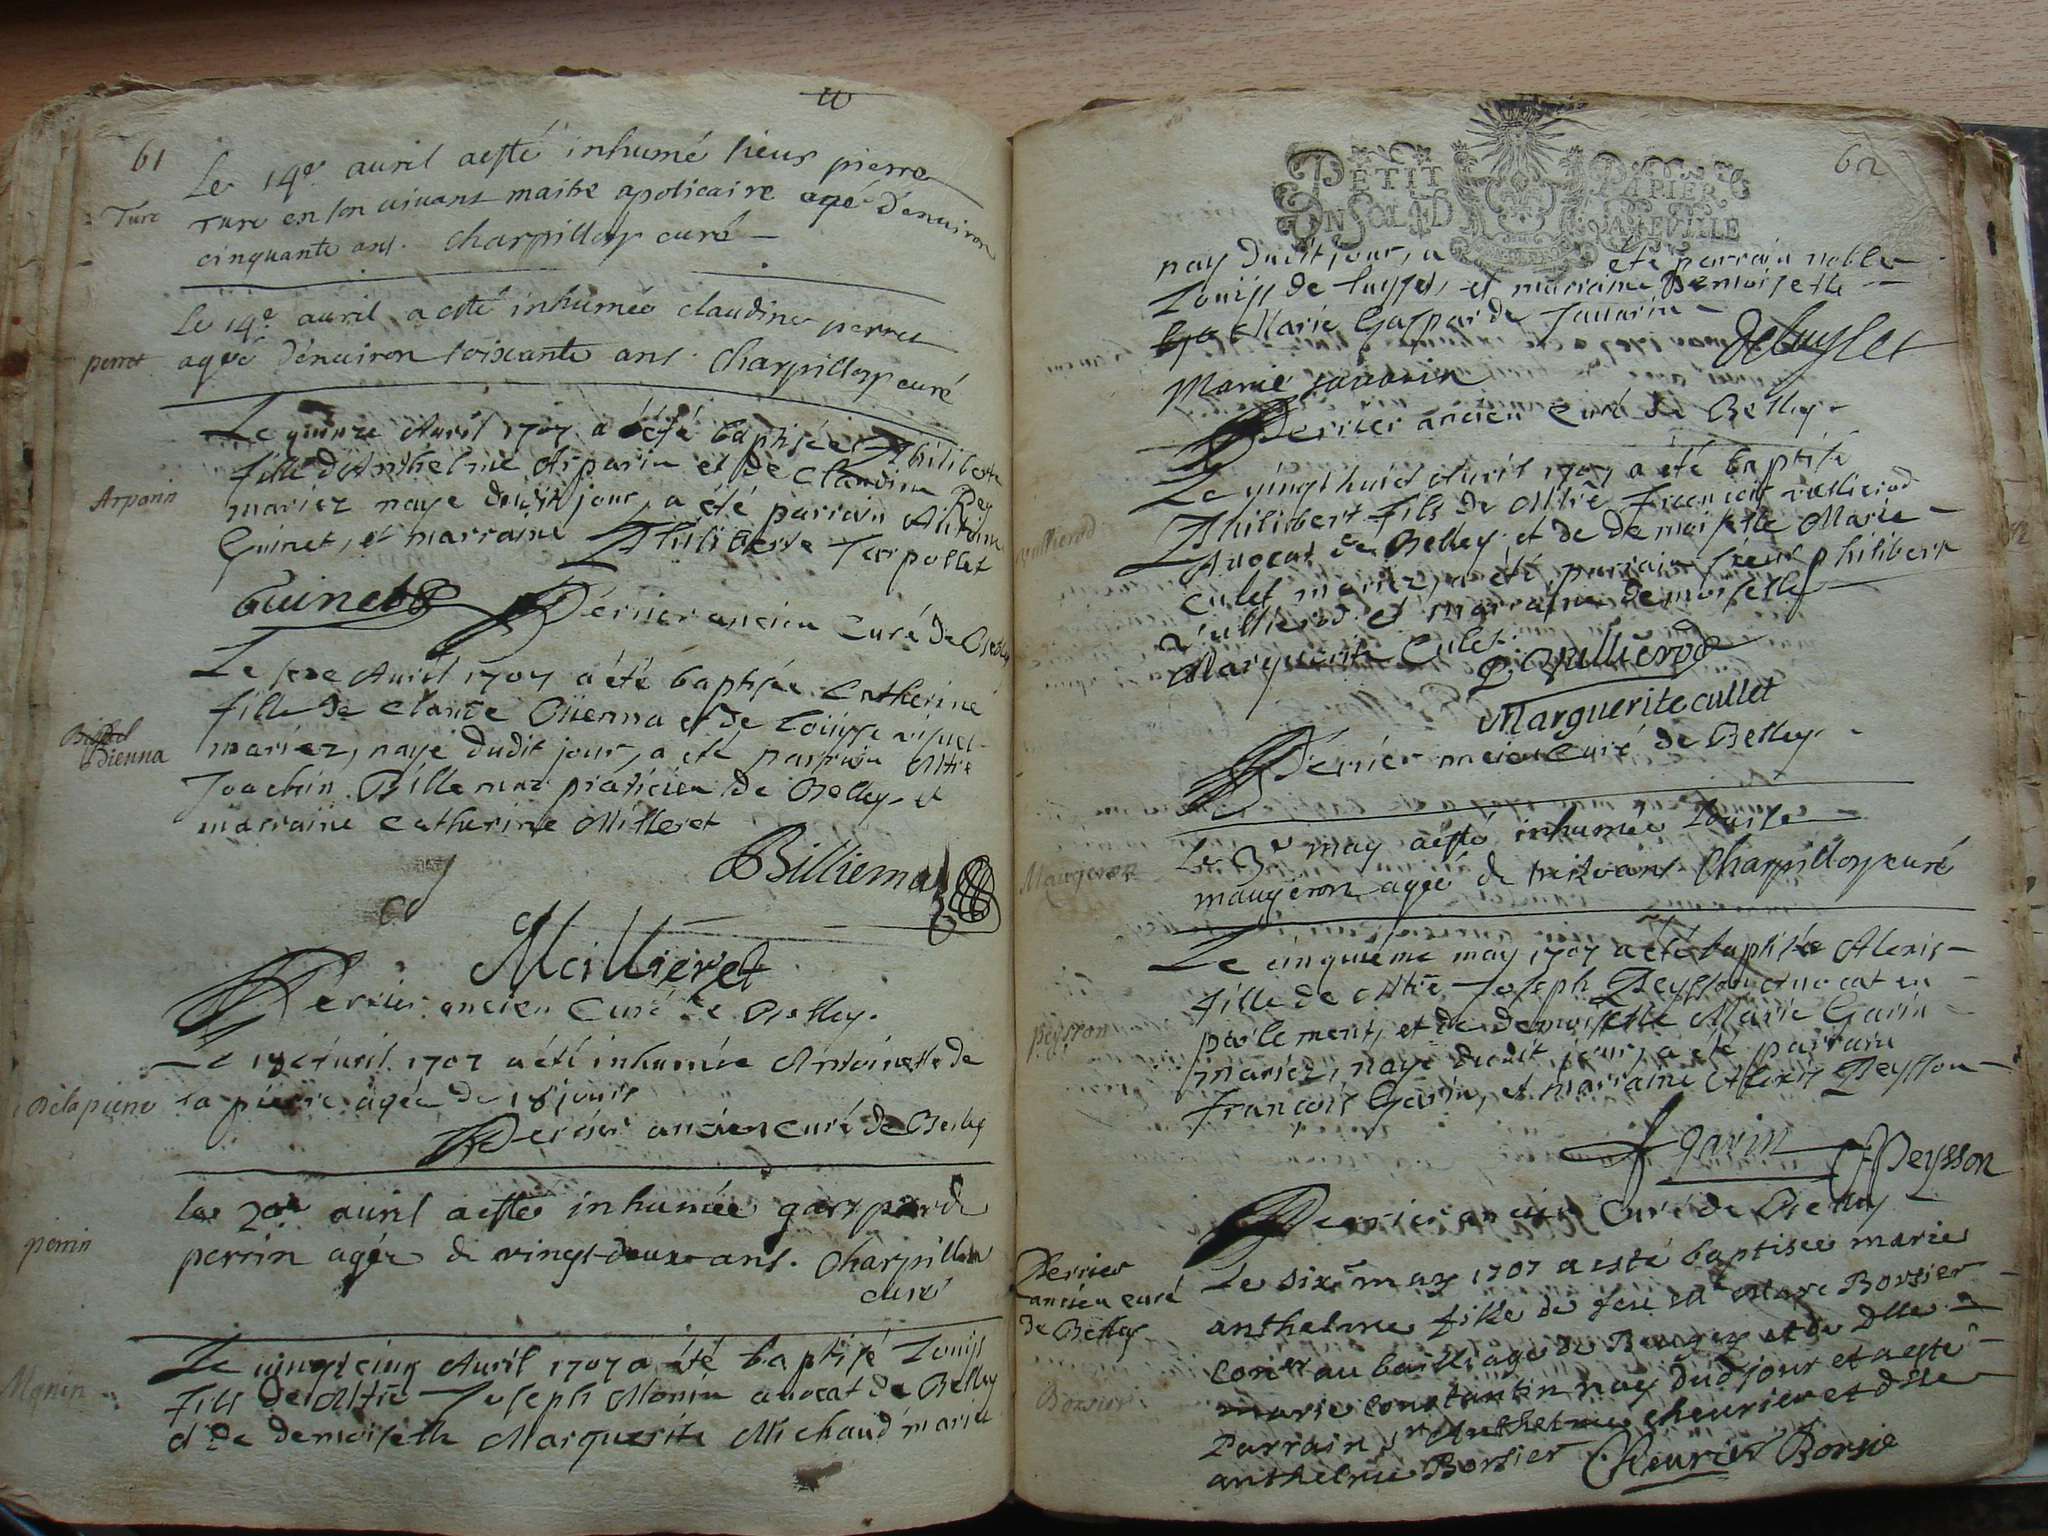 61
Le 14e auril aesté inhumé sieur pierre
Turc en son uiuant maitre apoticaire agé d'enuiron
cinquante ans. Charpilloy curé
Turc
Le 14e auril a esté inhumée claudine perret
agée d'enuiron soixante ans. Charpilloy curé
perret
Le quinze Avril 1707 a été baptisée Philiberte
fille d'Anthelme Arparin et de Claudine Rey
mariez naye dudit jour, a été parrain Antoine
Guinet, et marraine Philiberte
Arparin
Guinet
Perrier ancien Curé de Belley
Le seze Avril 1707 a été baptisée Catherine
fille de Claude Bienna et de Louise
mariez, naye dudit jour, a été parrain Mtre
Joachin Billiemaz praticien de Belley et
marraine Catherine Milleret
Bienna
Billiemaz
Meillieret
Perrier ancien Curé de Belley.
Le 19e Avril 1707 a été inhumée Antoinette de
la pierre agée de 18 jours
Delapierre
Perrier ancien curé de Belley
le auril aesté inhumée gasparde
perrin agée de vingt deux ans. Charpilloy
curé
perrin
Le vingt cinq Avril 1707 a été baptisé Louis
fils de Mtre Joseph Monin avocat de Belley
et de demoiselle Marguerite Michaud mariez
Monin
62
PETIT PAPIER
UN SOL LA FEUILLE
nay dudit jour, a été parrain noble
Louis de Luyset, et marraine Demoiselle
Marie Gasparde Jauarin
Deluyset
Marie Jauarin
Perrier ancien Curé de Belley
Le vingt huit Avril 1707 a été baptisé
Philibert fils de Mtre François vullierod
Avocat de Belley et de Demoiselle Marie
Culet mariez, a été parrain sieur philibert
Vullierod et marraine demoiselle
Marguerite Culet.
Vullierod
P. Vullierod
Marguerite cullet
Perrier ancien Curé de Belley
Le 3e may aesté inhumée Louise
maugeron agée de ans Charpilloy curé
Maugeron
Le cinquiéme may 1707 a été baptisée Alexis
fille de Mtre Joseph Peysson avocat en
parlement, et de demoiselle Marie Garin
mariez, naye dudit jour, a été parrain
François Garin, et marraine Alexis Peysson
Peysson
f garin
Peysson
Perrier ancien Curé de Belley
Le sixe may 1707 a esté baptisée marie
anthelme fille de feu Mr Marc Borsier
coner au bailliage de Beugey et de dlle
marie constantin nay dud jour et aesté
Parrain sr Anthelme cheurier et dlle
anthelme Borsier Cheurier Borsie
Perrier
ancien curé
de Belley
Borsier